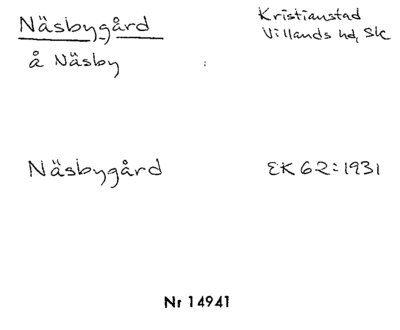 Näsbygård
Kristianstad
Villands hd, Sk
å Näsby
Näsbygård
EK 62:1931
Nr 14941